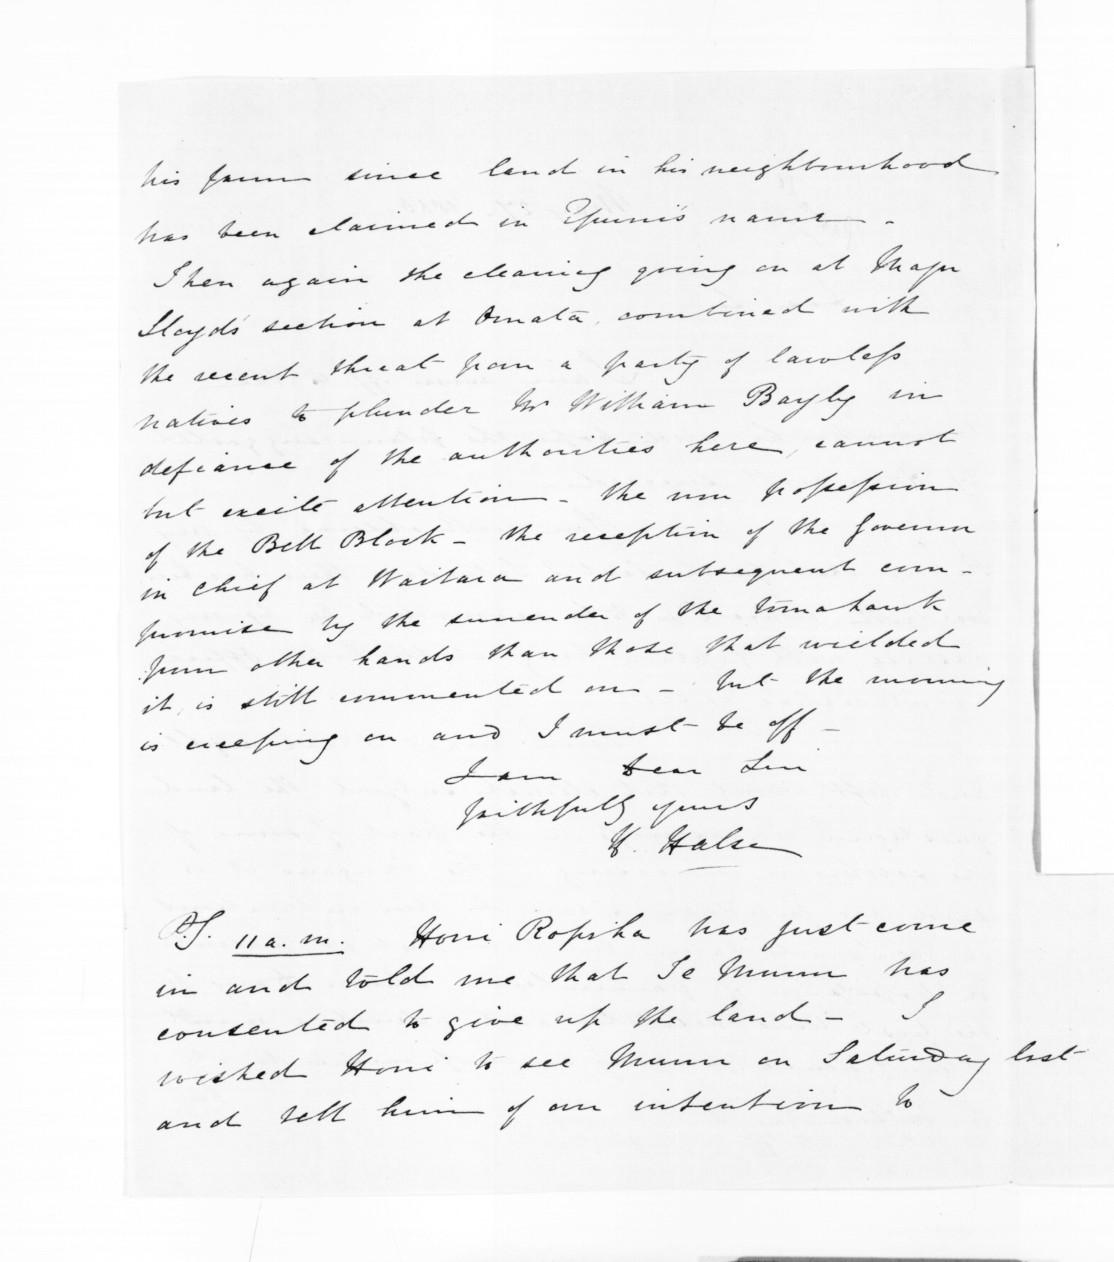 his farm since land in his neighbourhood
has been claimed in Epuni's name -
Then again the clearing going on at Major
Lloyd's section at Omata, combined with
the recent threat from a party of lawless
natives to plunder Mr William Bayly in
defiance of the authorities here, cannot
but excite attention - the non possession
of the Bell Block - the reception of the Governor
in chief at Waitara and subsequent com-
promise by the surrender of the tomahawk
from other hands than those that wielded
it, is still commented on - but the morning
is creeping on and I must be off -
I am Dear Sir
faithfully yours
H. Halse
P.S. 11 a.m. Honi Ropiha has just come
in and told me that Te Munu has
consented to give up the land - I
wished Honi to see Munu on Saturday last
and tell him of our intention to